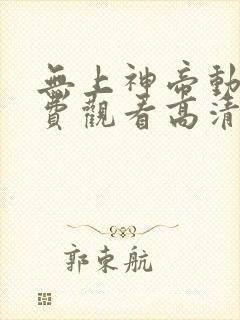 無上神帝動
費觀看高清
郭東航